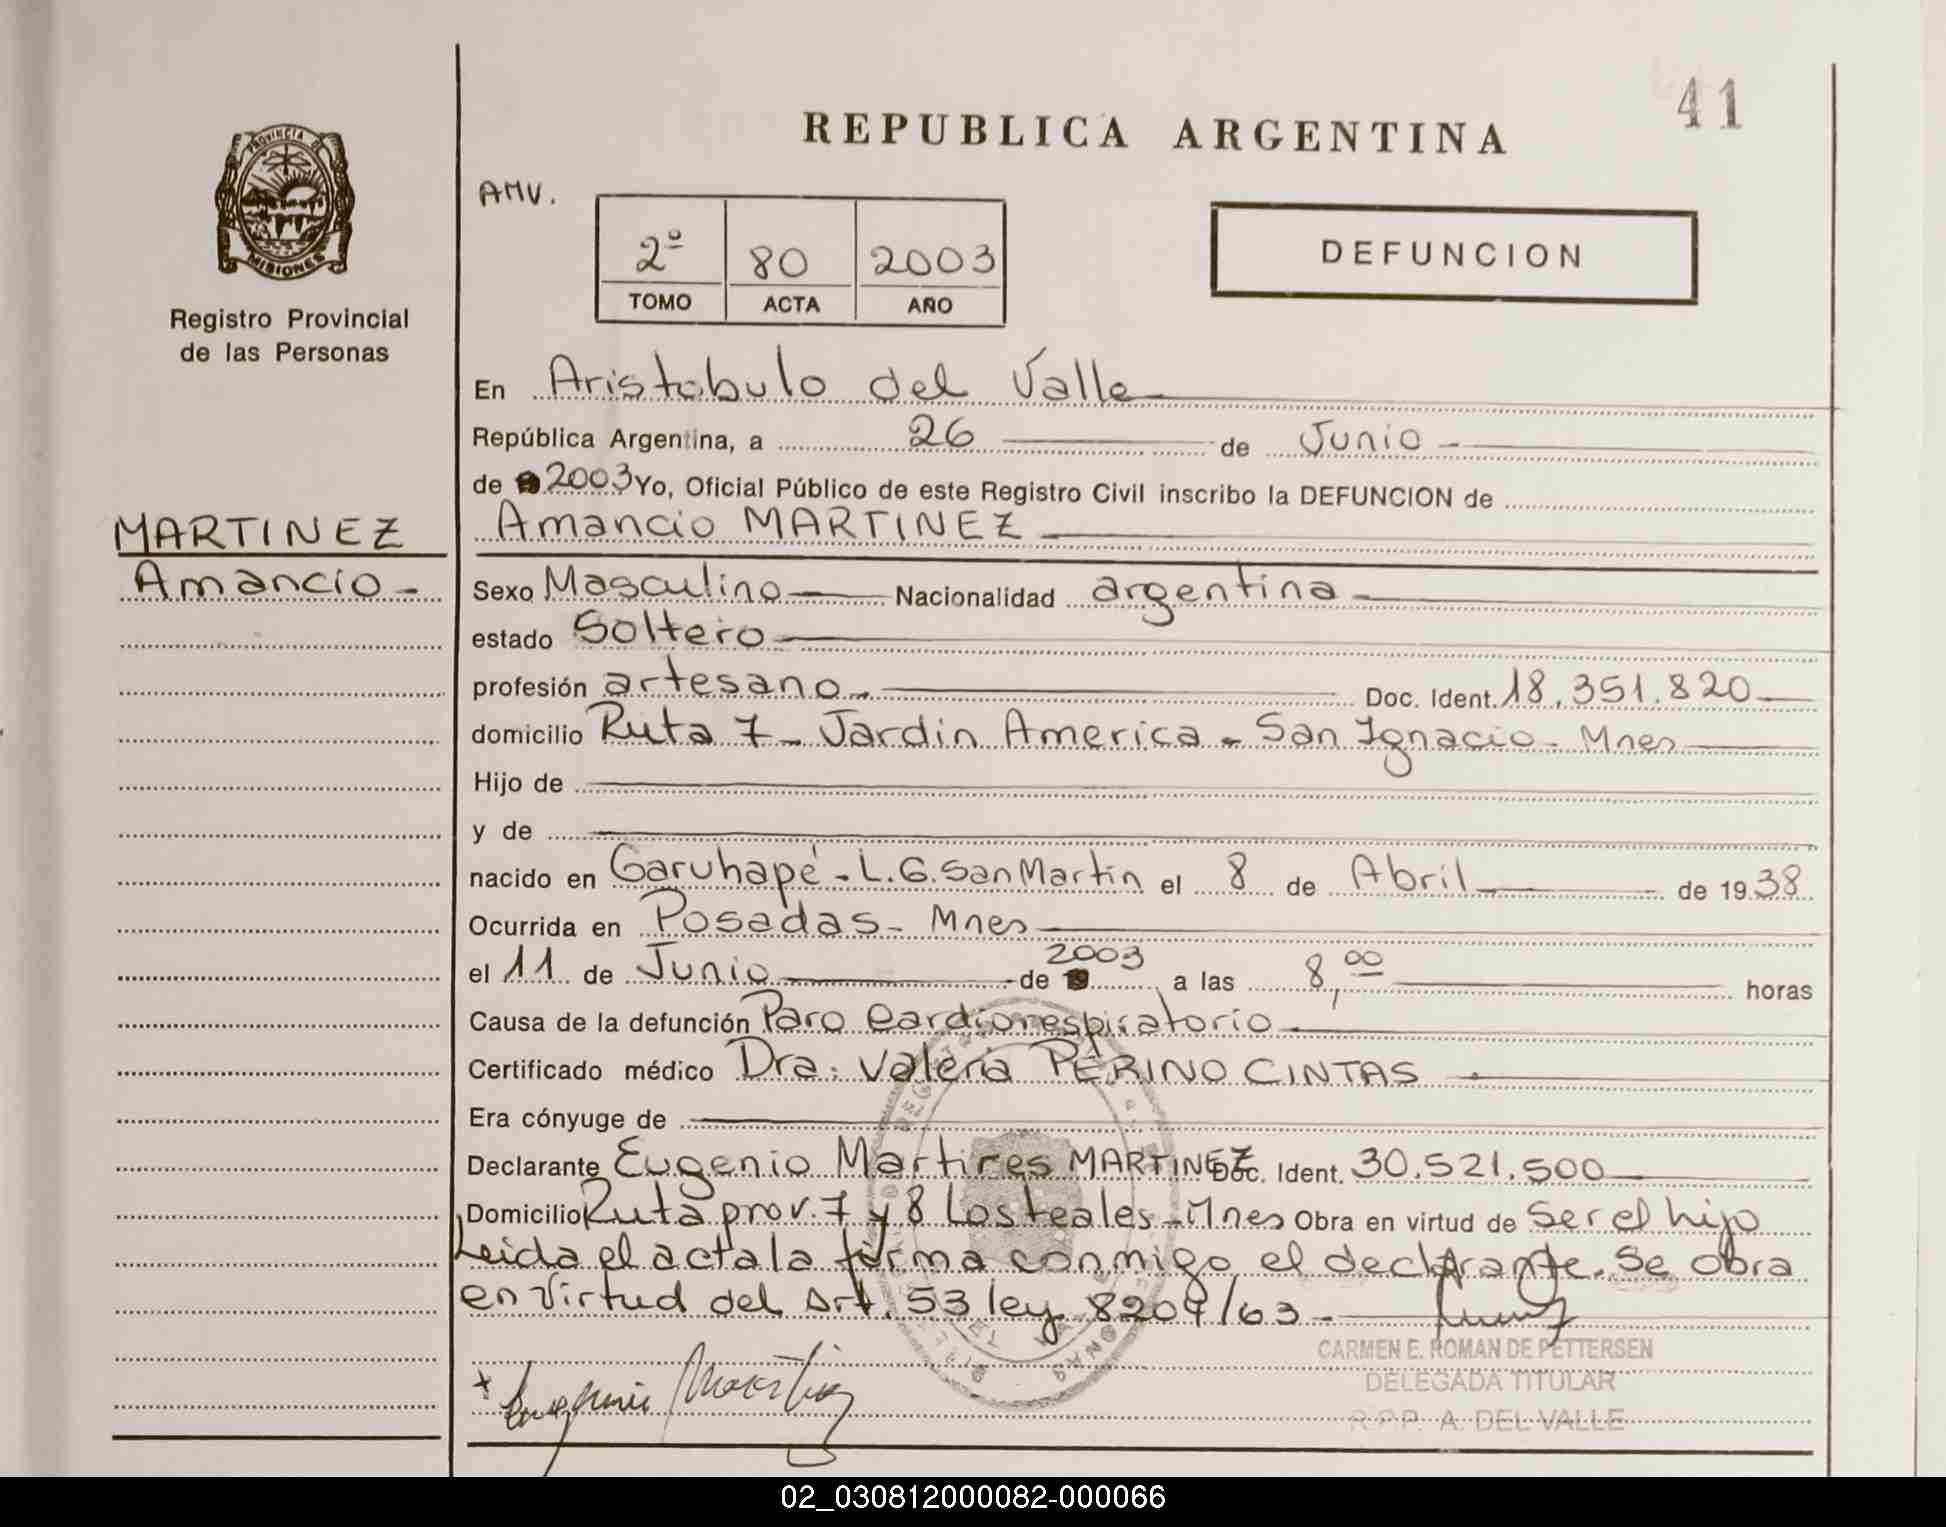 41
REPUBLICA ARGENTINA
PROVINCIA DE
MISIONES
Registro Provincial
de las Personas
AMV.
2º 80 2003
TOMO ACTA AÑO
DEFUNCION
En Aristobulo del Valle
República Argentina, a 26 de Junio
de 2003 Yo, Oficial Público de este Registro Civil inscribo la DEFUNCION de
MARTINEZ
Amancio
Amancio MARTINEZ
Sexo Masculino Nacionalidad argentina
estado Soltero
profesión artesano Doc. Ident. 18.351.820
domicilio Ruta 7 - Jardin America - San Ignacio - Mnes
Hijo de
y de
nacido en Garuhapé - L.G. San Martin el 8 de Abril de 1938
Ocurrida en Posadas - Mnes
el 11 de Junio de 2003 a las 8,00 horas
Causa de la defunción Paro Cardiorrespiratorio
Certificado médico Dra: Valeria PERINO CINTAS
Era cónyuge de
Declarante Eugenio Martires MARTINEZ Doc. Ident. 30.521.500
Domicilio Ruta prov. 7 y 8 Los teales - Mnes Obra en virtud de Ser el hijo
Leida el acta la firma conmigo el declarante. Se obra
en Virtud del Art. 53 ley 8204/63 -
CARMEN E. ROMAN DE PETTERSEN
DELEGADA TITULAR
R.P.P. A. DEL VALLE
Eugenio Martinez
02_030812000082-000066